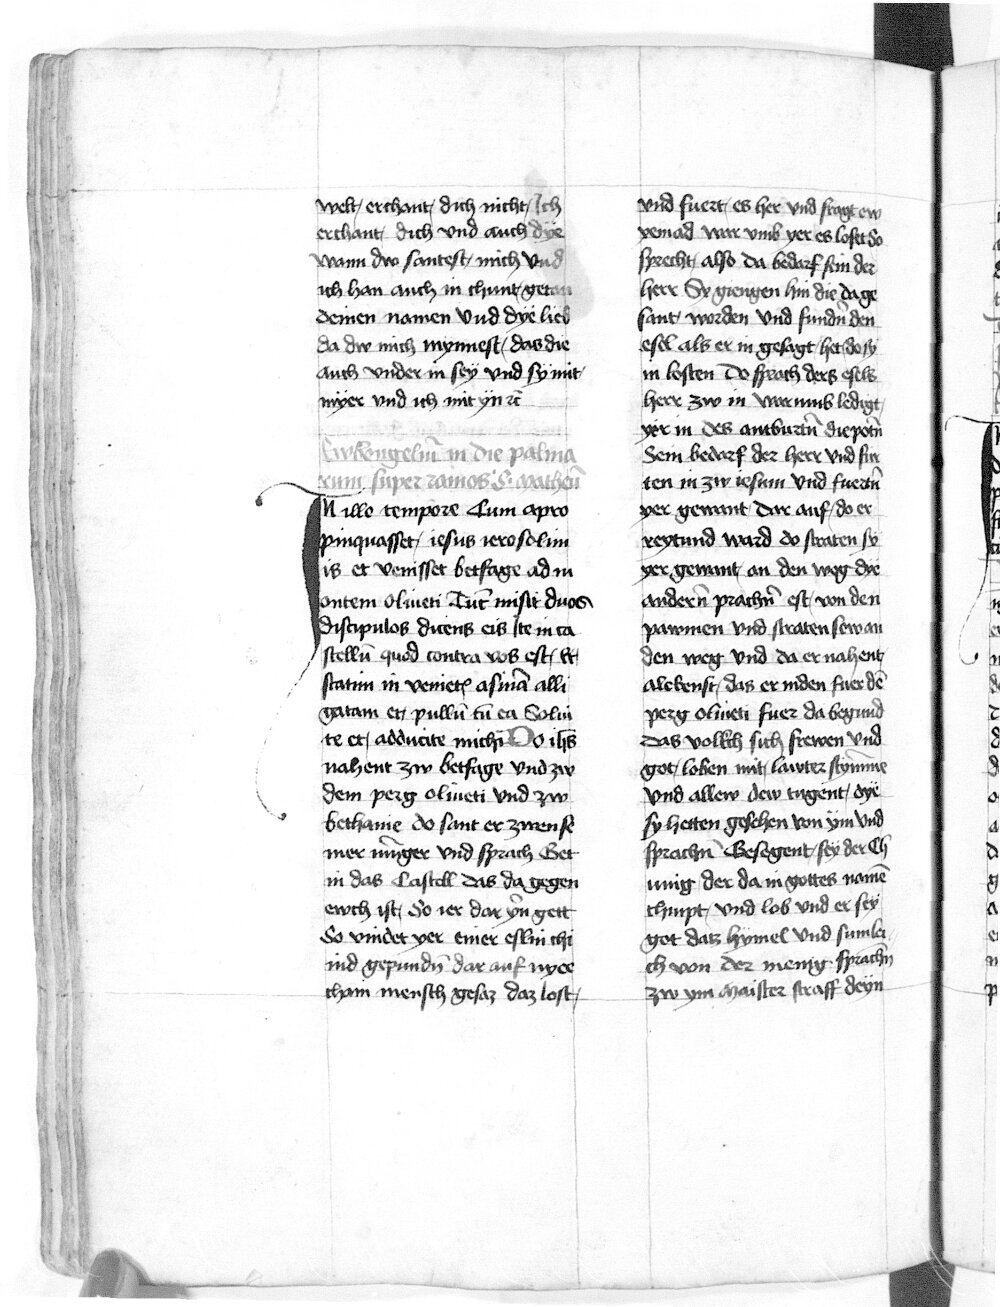 welt erchant dich nicht Ich
erchant dich vnd auch dye
wann dw santest mich vnd
ich han auch in chunt getan
deinen namen Vnd dye lieb
da dw mich mynnest das die
auch vnder in sey vnd sy mit
myer vnd ich mit yn
Ewangeliū in die palma
rum super ramos S. Matheū
IN illo tempore Cum apro
pinquasset iesus ierosolim
is et venisset betfage ad m
ontem oliueti Tūc misit duos
discipulos dicens eis Ite in ca
stellū quod contra vos est et
statim in venietꝭ asinā alli
gatam et pullū cū ea Solui
te et adducite michi Do ihs
nahent zw betfage vnd zw
dem perg oliueti vnd zw
bethanie do sant er zwen se
iner iūnger vnd sprach Get
in das Castell das da gegen
ewch ist So ier dar yn gett
So vindet yer einer eslin chi
ind gepundn̄ dar auf nyee
chain mensch gesaz daz lost
vnd fuert es her vnd fragt ew
yemad war vmb yer es loset So
sprecht also da bedarf sein der
herr Sy giengen hin die da ge
sant worden vnd fundn̄ den
esel als er in gesagt het do sy
in losten Do sprach ders esels
herr zw in warumb ledigt
yer in des antburtn̄ die potn̄
Sein bedarf der herr vnd fur
ten in zw iesum vnd fuertn̄
yer gewant dar auf do er
reytund ward do straten sy
yer gewant an den weg dye
andern̄ prachn̄ est von den
pawmen vnd straten sew an
den weg vnd da er nahent
alebenst das er niden fuer dē
perg oliueti fuer da begund
das volkch sich frewen vnd
got loben mit lawter stymme
vnd allew dew tugent dye
sy hetten gesehen von ym vnd
sprachn̄ Gesegent sey der Ch
unig der da in gottes namē
chumpt vnd lob vnd er sey
got daz hymel vnd sumlei
ch von der menig sprachn̄
zw ym Maister straff deyn